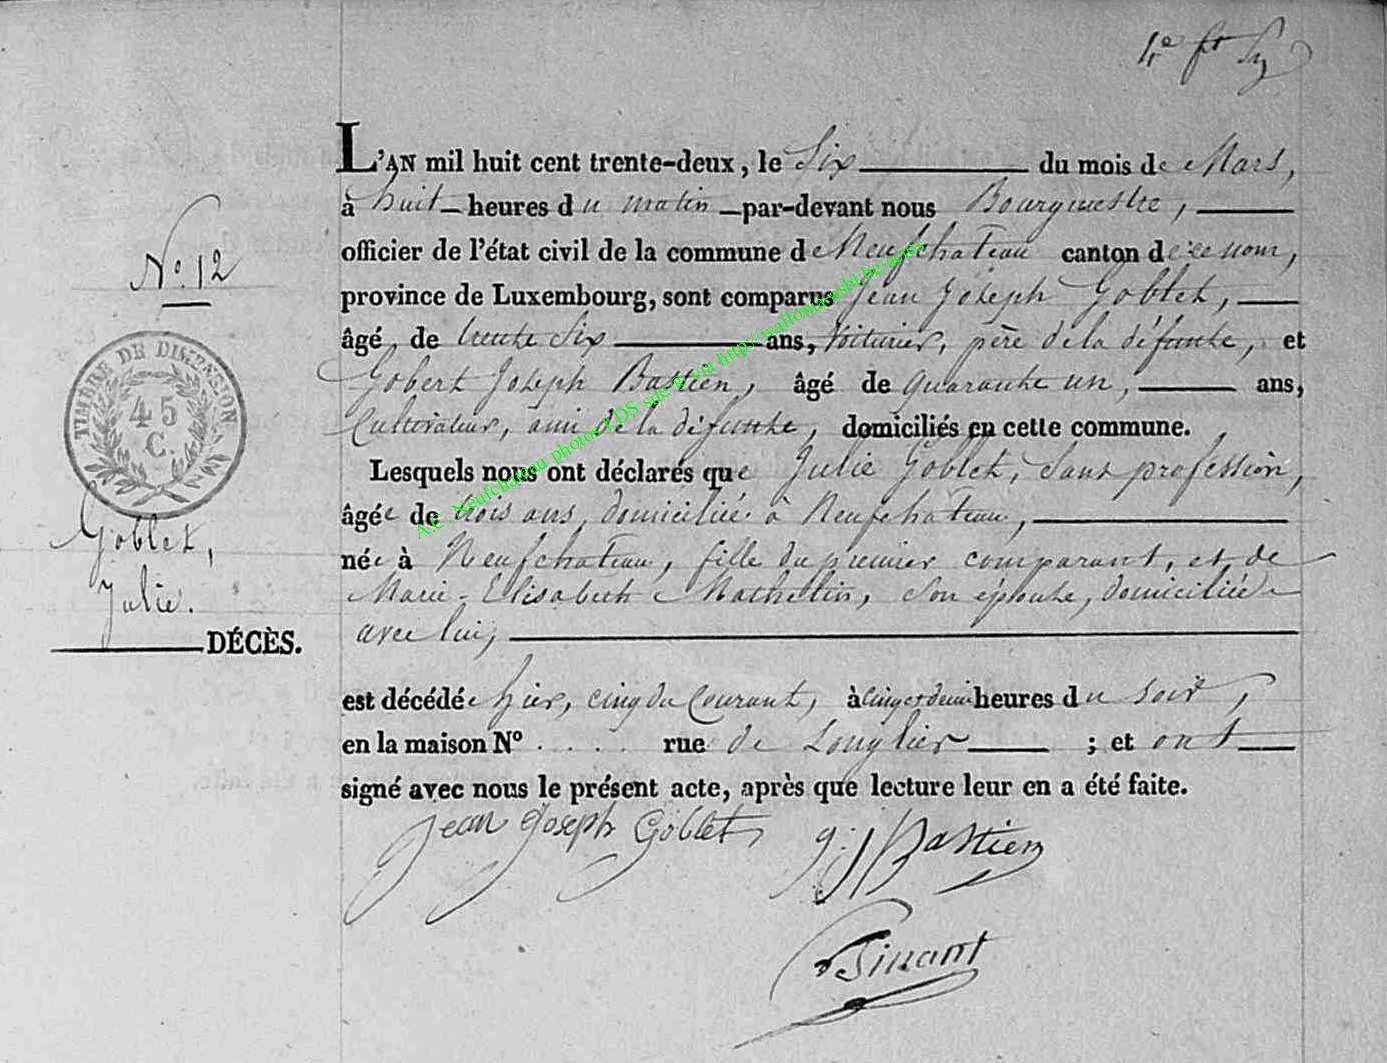 4e ft
L'AN mil huit cent trente-deux, le Six du mois de Mars,
à huit heures du matin par-devant nous Bourgmestre,
officier de l'état civil de la commune de Neufchateau canton de ce nom,
province de Luxembourg, sont comparus Jean Joseph Goblet,
âgé de trente Six ans, Voiturier, père de la défunte, et
Gobert Joseph Bastien, âgé de quarante un, ans,
Cultivateur, ami de la défunte, domiciliés en cette commune.
Lesquels nous ont déclarés que Julie Goblet, Sans profession,
âgée de trois ans, domiciliée à Neufchateau,
née à Neufchateau, fille du premier comparant, et de
Marie-Elisabeth Mathelin, Son épouse, domiciliée
avec lui,
est décédée hier, cinq du Courant, à cinq et demie heures du soir,
en la maison Nº . . . . rue de Longlier ; et ont
signé avec nous le présent acte, après que lecture leur en a été faite.
Jean Joseph Goblet, g: J Bastien
Pinant
Nº. 12
TIMBRE DE DIMENSION
45
C.
Goblet,
Julie.
DÉCÈS.
A.E. Neufchateau photos LDS sur et via http://wallonia.asbl.be/actes